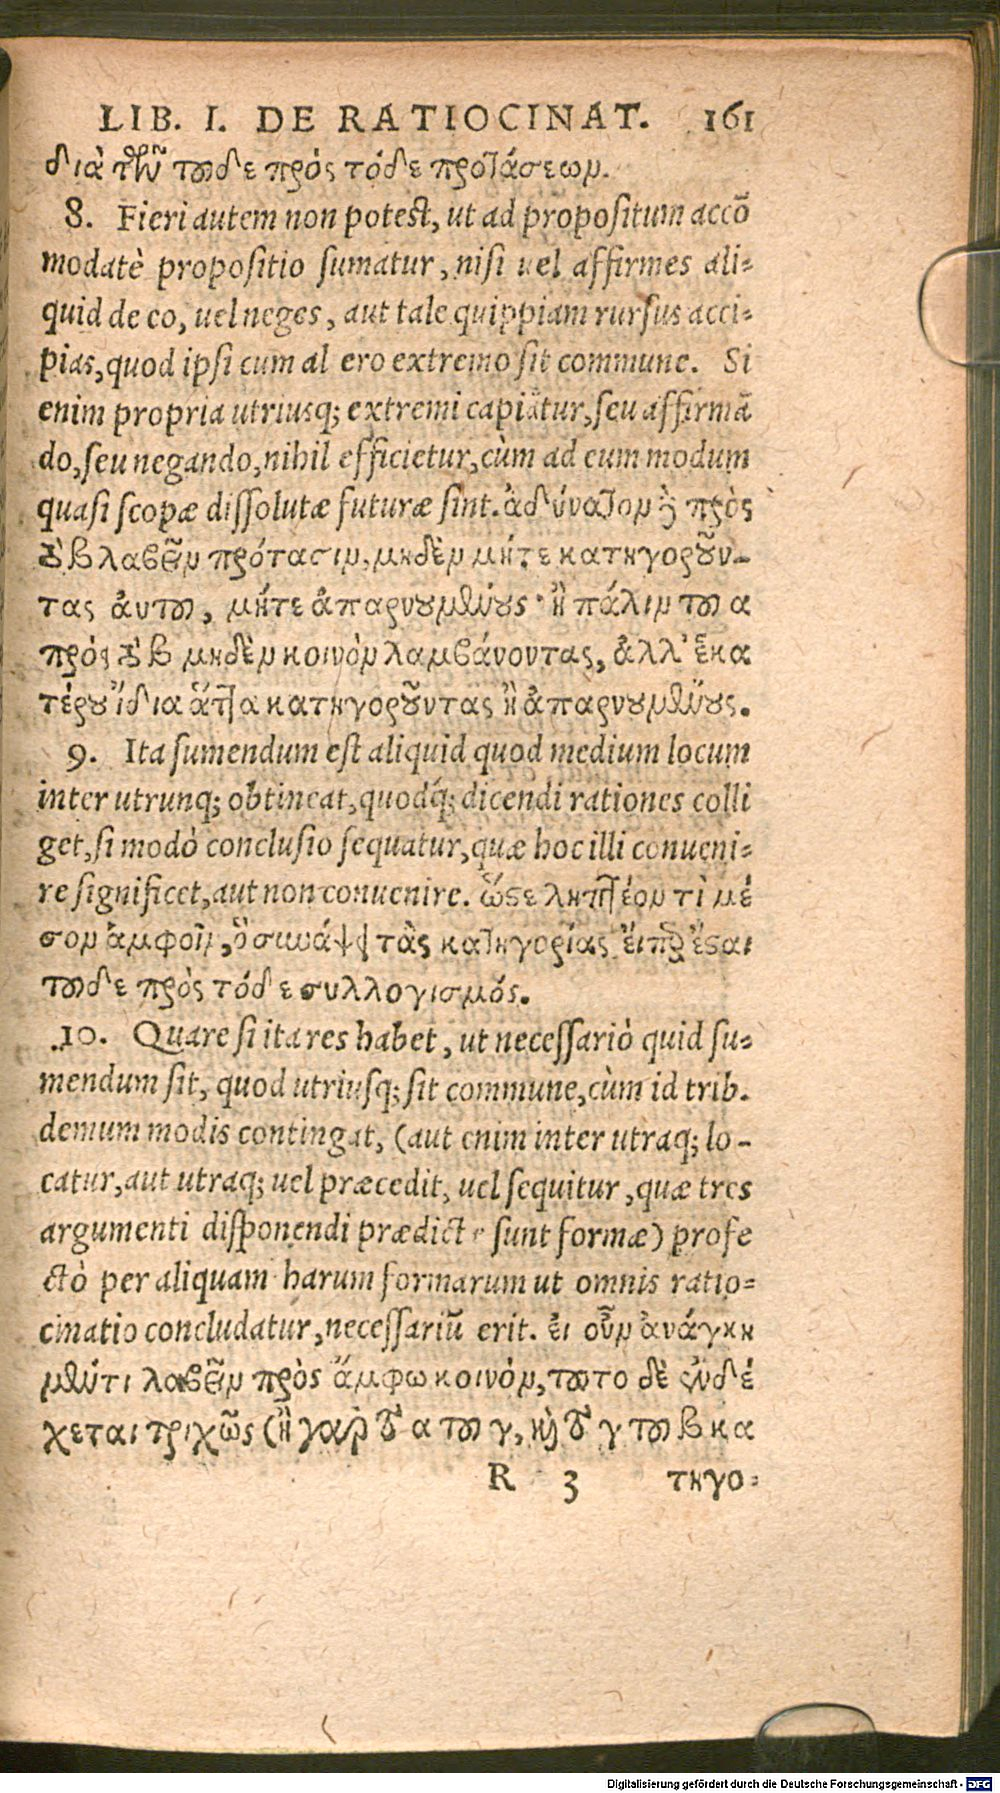 LIB. I. DE RATIOCINAT. 161
διὰ τῶν τοῦδε πρὸς τόδε προτάσεων.
8. Fieri autem non potest, ut ad propositum accō
modatè propositio sumatur, nisi uel affirmes ali-
quid de eo, uel neges, aut tale quippiam rursus acci-
pias, quod ipsi cum al ero extremo sit commune. Si
enim propria utriusq; extremi capiātur, seu affirmā
do, seu negando, nihil efficietur, cùm ad eum modum
quasi scopæ dissolutæ futuræ sint. ἀδύνατον δὲ πρὸς
τὸ β λαβεῖν πρότασιν, μηδὲν μήτε κατηγοροῦν-
τας αὐτοῦ, μήτε ἀπαρνουμένους· ἢ πάλιν τοῦ α
πρὸς τὸ β μηδὲν κοινὸν λαμβάνοντας, ἀλλ' ἑκα
τέρου ἴδια ἄττα κατηγοροῦντας ἢ ἀπαρνουμένους.
9. Ita sumendum est aliquid quod medium locum
inter utrunq; obtineat, quodq́; dicendi rationes colli
get, si modò conclusio sequatur, quæ hoc illi conueni-
re significet, aut non conuenire. ὥστε ληπτέον τὶ μέ
σον ἀμφοῖν, ὃ συνάψει τὰς κατηγορίας εἴπερ ἔσται
τοῦδε πρὸς τόδε συλλογισμός.
10. Quare si ita res habet, ut necessariò quid su-
mendum sit, quod utriusq; sit commune, cùm id trib.
demum modis contingat, (aut enim inter utraq; lo-
catur, aut utraq; uel præcedit, uel sequitur, quæ tres
argumenti disponendi prædict sunt formæ) profe
ctò per aliquam harum formarum ut omnis ratio-
cinatio concludatur, necessariū erit. εἰ οὖν ἀνάγκη
μέν τι λαβεῖν πρὸς ἄμφω κοινὸν, τοῦτο δὲ ἐνδέ
χεται τριχῶς (ἢ γὰρ τὸ α τοῦ γ, καὶ τὸ γ τοῦ β κα
R 3 τηγο-
Digitalisierung gefördert durch die Deutsche Forschungsgemeinschaft - DFG